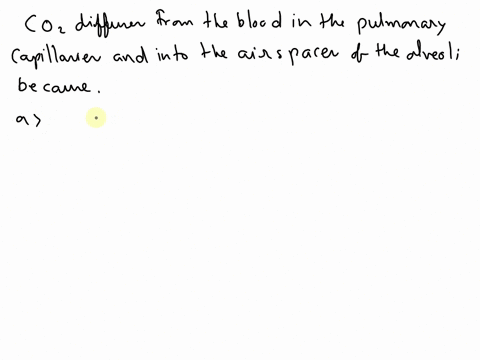 CO2 diffuses from the blood in the pulmonary
capillaries and into the airspaces of the alveoli
because.
a>